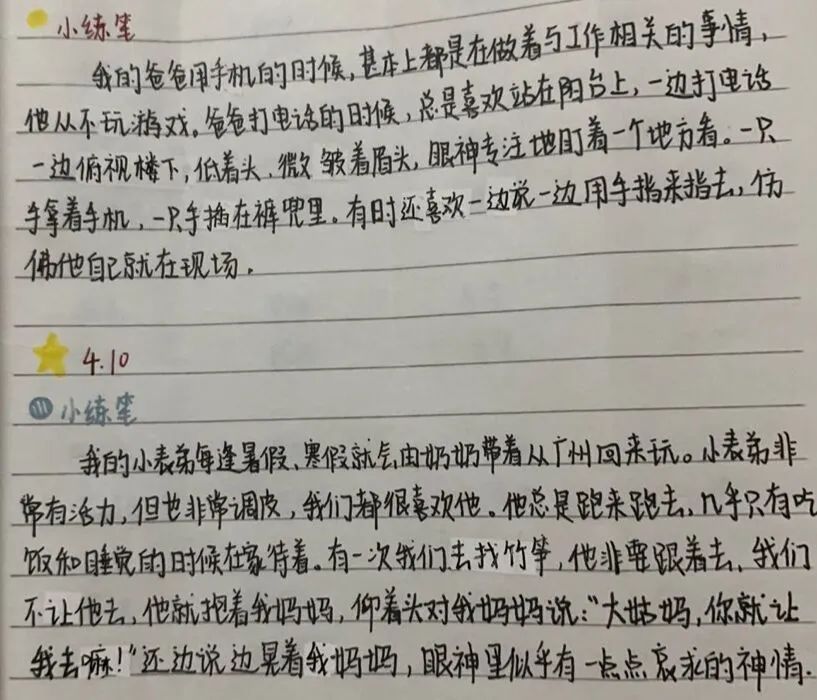 小练笔
我的爸爸用手机的时候，基本上都是在做着与工作相关的事情，
他从不玩游戏。爸爸打电话的时候，总是喜欢站在阳台上，一边打电话
一边俯视楼下，低着头、微皱着眉头，眼神专注地盯着一个地方看。一只
手拿着手机，一只手插在裤兜里。有时还喜欢一边说一边用手指来指去，仿
佛他自己就在现场。
4.10
小练笔
我的小表弟每逢暑假、寒假就会由奶奶带着从广州回来玩。小表弟非
常有活力，但也非常调皮，我们都很喜欢他。他总是跑来跑去，几乎只有吃
饭和睡觉的时候在家待着。有一次我们去找竹笋，他非要跟着去，我们
不让他去，他就抱着我妈妈，仰着头对我妈妈说：“大姑妈，你就让
我去嘛！”还边说边晃着我妈妈，眼神里似乎有一点点哀求的神情.